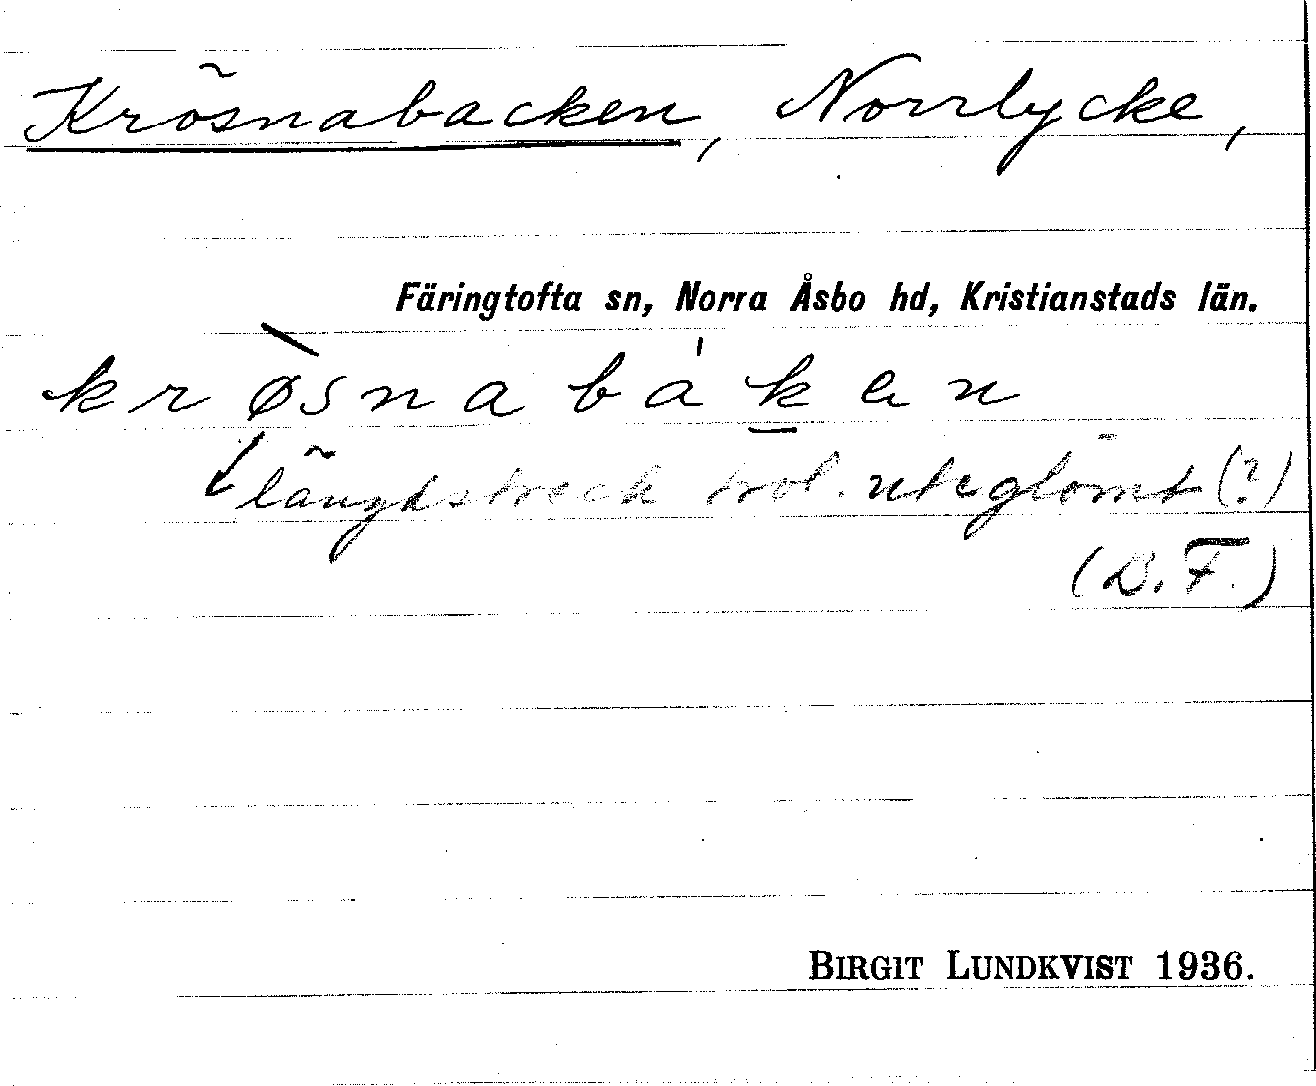 Krösnabacken, Norrlycke,
Färingtofta sn, Norra Åsbo hd, Kristianstads län.
krø̀snabákan
längdstreck trol. uteglömt (?)
(B.F.)
BIRGIT LUNDKVIST 1936.